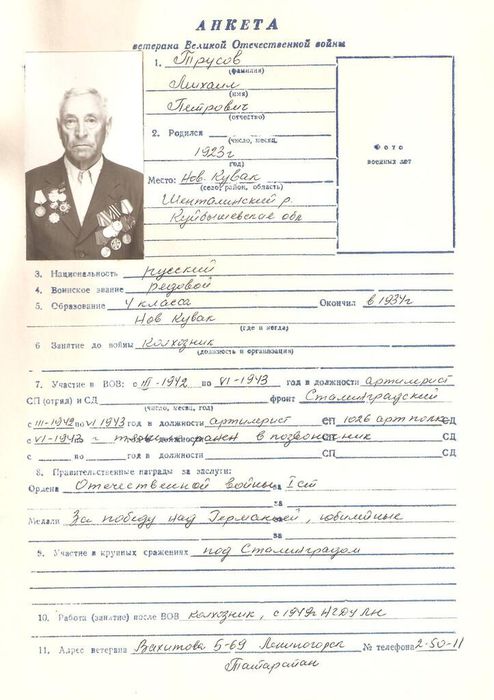 АНКЕТА
ветерана Великой Отечественной войны
1. Трусов
(фамилия)
Михаил
(имя)
Петрович
(отчество)
2. Родился
(число, месяц,
1923г
год)
Место: Нов. Кувак
(село, район, область)
Шенталинский р.
Куйбышевская обл
Фото
военных лет
3. Национальность русский
4. Воинское звание рядовой
5. Образование 4 класса Окончил в 1934г
Нов Кувак
(где и когда)
6 Занятие до войны Колхозник
(должность и организация)
7. Участие в ВОВ: с III-1942 по VI-1943 год в должности артилерист
СП (отряд) и СД фронт Сталинградский
(число, месяц, год)
с III-1942 по VI 1943 год в должности артилерист СП 1026 арт полк СД
с VI-1943 г ранен в позвоночник СД
с по год в должности СП СД
8. Правительственные награды за заслуги:
Ордена Отечественной войны за I ст
за
Медали За победу над Германией, юбилейные
за
9. Участие в крупных сражениях под Сталинградом
10. Работа (занятие) после ВОВ колхозник, с 1949г НГДУ ЛН
11. Адрес ветерана Вахитова 5-69 Лениногорск № телефона 2-50-11
Татарстан